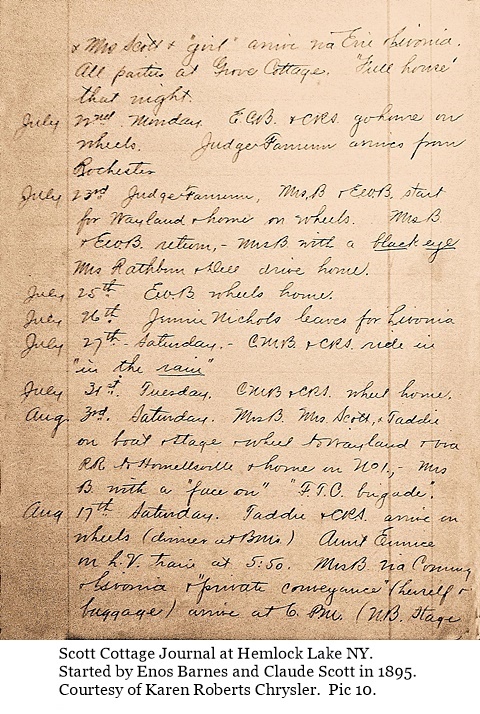 & Mrs Scott & "girl" arrive via Erie & Livonia.
All parties at Grove Cottage. "Full house"
that night.
July 22nd Monday. E.C.B. & C.R.S. go home on
wheels. Judge Farnum arrives from
Rochester
July 23rd Judge Farnum, Mrs B & E.W.B. start
for Wayland & home on wheels. Mrs B
& E.W.B. return,- Mrs B with a black eye
Mrs Rathbun & Dell drive home.
July 25th E.W.B wheels home.
July 26th Jennie Nichols leaves for Livonia
July 27th - Saturday. - C.M.B & C.R.S. ride in
"in the rain"
July 31st. Tuesday. C.M.B & C.R.S. wheel home.
Aug. 3rd. Saturday. Mrs B. Mrs. Scott, & Taddie
on boat & stage & wheel to Wayland & via
RR to Hornellsville & home on No 1,- Mrs
B. with a "face on" "F.T.C. brigade".
Aug 17th Saturday. Taddie & C.R.S. arrive on
wheels (dinner at BMs.) Aunt Eunice
on L.V. train at 5:50. Mrs B. via Corning
& Livonia & "private conveyance" (herself &
luggage) arrive at 6 P.M. (N.B. Stage
Scott Cottage Journal at Hemlock Lake NY.
Started by Enos Barnes and Claude Scott in 1895.
Courtesy of Karen Roberts Chrysler. Pic 10.